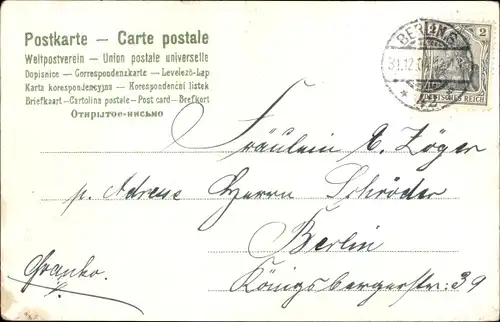 Postkarte – Carte postale
Weltpostverein – Union postale universelle
Dopisnice – Correspondenzkarte – Levelező-Lap
Karta korespondencyjna – Korespondenční lístek
Briefkaart – Cartolina postale – Post card – Brefkort
Открытое-письмо
BERLIN
31.12.
2
DEUTSCHES REICH
Fräulein E. Zöger
p. Adresse Herrn Schröder
Berlin
Franko.
Königsbergerstr. 39